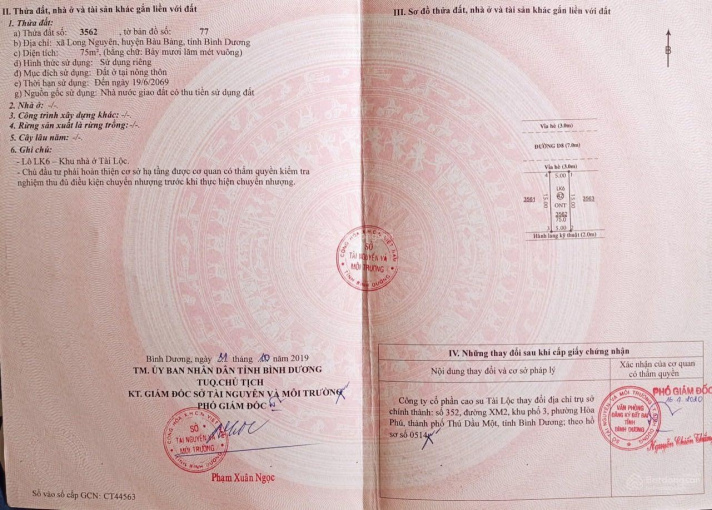 II. Thửa đất, nhà ở và tài sản khác gắn liền với đất
1. Thửa đất:
a) Thửa đất số: 3562 , tờ bản đồ số: 77
b) Địa chỉ: xã Long Nguyên, huyện Bàu Bàng, tỉnh Bình Dương
c) Diện tích: 75m², (bằng chữ: Bảy mươi lăm mét vuông)
d) Hình thức sử dụng: Sử dụng riêng
đ) Mục đích sử dụng: Đất ở tại nông thôn
e) Thời hạn sử dụng: Đến ngày 19/6/2069
g) Nguồn gốc sử dụng: Nhà nước giao đất có thu tiền sử dụng đất
2. Nhà ở: -/-
3. Công trình xây dựng khác: -/-
4. Rừng sản xuất là rừng trồng: -/-
5. Cây lâu năm: -/-
6. Ghi chú:
- Lô LK6 – Khu nhà ở Tài Lộc.
- Chủ đầu tư phải hoàn thiện cơ sở hạ tầng được cơ quan có thẩm quyền kiểm tra
nghiệm thu đủ điều kiện chuyển nhượng trước khi thực hiện chuyển nhượng.
Bình Dương, ngày 21 tháng 10 năm 2019
TM. ỦY BAN NHÂN DÂN TỈNH BÌNH DƯƠNG
TUQ.CHỦ TỊCH
KT. GIÁM ĐỐC SỞ TÀI NGUYÊN VÀ MÔI TRƯỜNG
PHÓ GIÁM ĐỐC
SỞ
TÀI NGUYÊN VÀ
MÔI TRƯỜNG
Phạm Xuân Ngọc
Số vào sổ cấp GCN: CT44563
SỞ
TÀI NGUYÊN VÀ
MÔI TRƯỜNG
TỈNH BÌNH DƯƠNG
III. Sơ đồ thửa đất, nhà ở và tài sản khác gắn liền với đất
B
Vỉa hè (3.0m)
ĐƯỜNG D8 (7.0m)
Vỉa hè (3.0m)
4 5.00 1
LK6
3561 15.00 ONT 15.00 3563
3562
75.0
3 5.00 2
Hành lang kỹ thuật (2.0m)
IV. Những thay đổi sau khi cấp giấy chứng nhận
Nội dung thay đổi và cơ sở pháp lý
Xác nhận của cơ quan
có thẩm quyền
Công ty cổ phần cao su Tài Lộc thay đổi địa chỉ trụ sở
chính thành: số 352, đường XM2, khu phố 3, phường Hòa
Phú, thành phố Thủ Dầu Một, tỉnh Bình Dương; theo hồ
sơ số 0514
PHÓ GIÁM ĐỐC
VĂN PHÒNG
ĐĂNG KÝ ĐẤT ĐAI
TỈNH
BÌNH DƯƠNG
Nguyễn Chiến Thắng